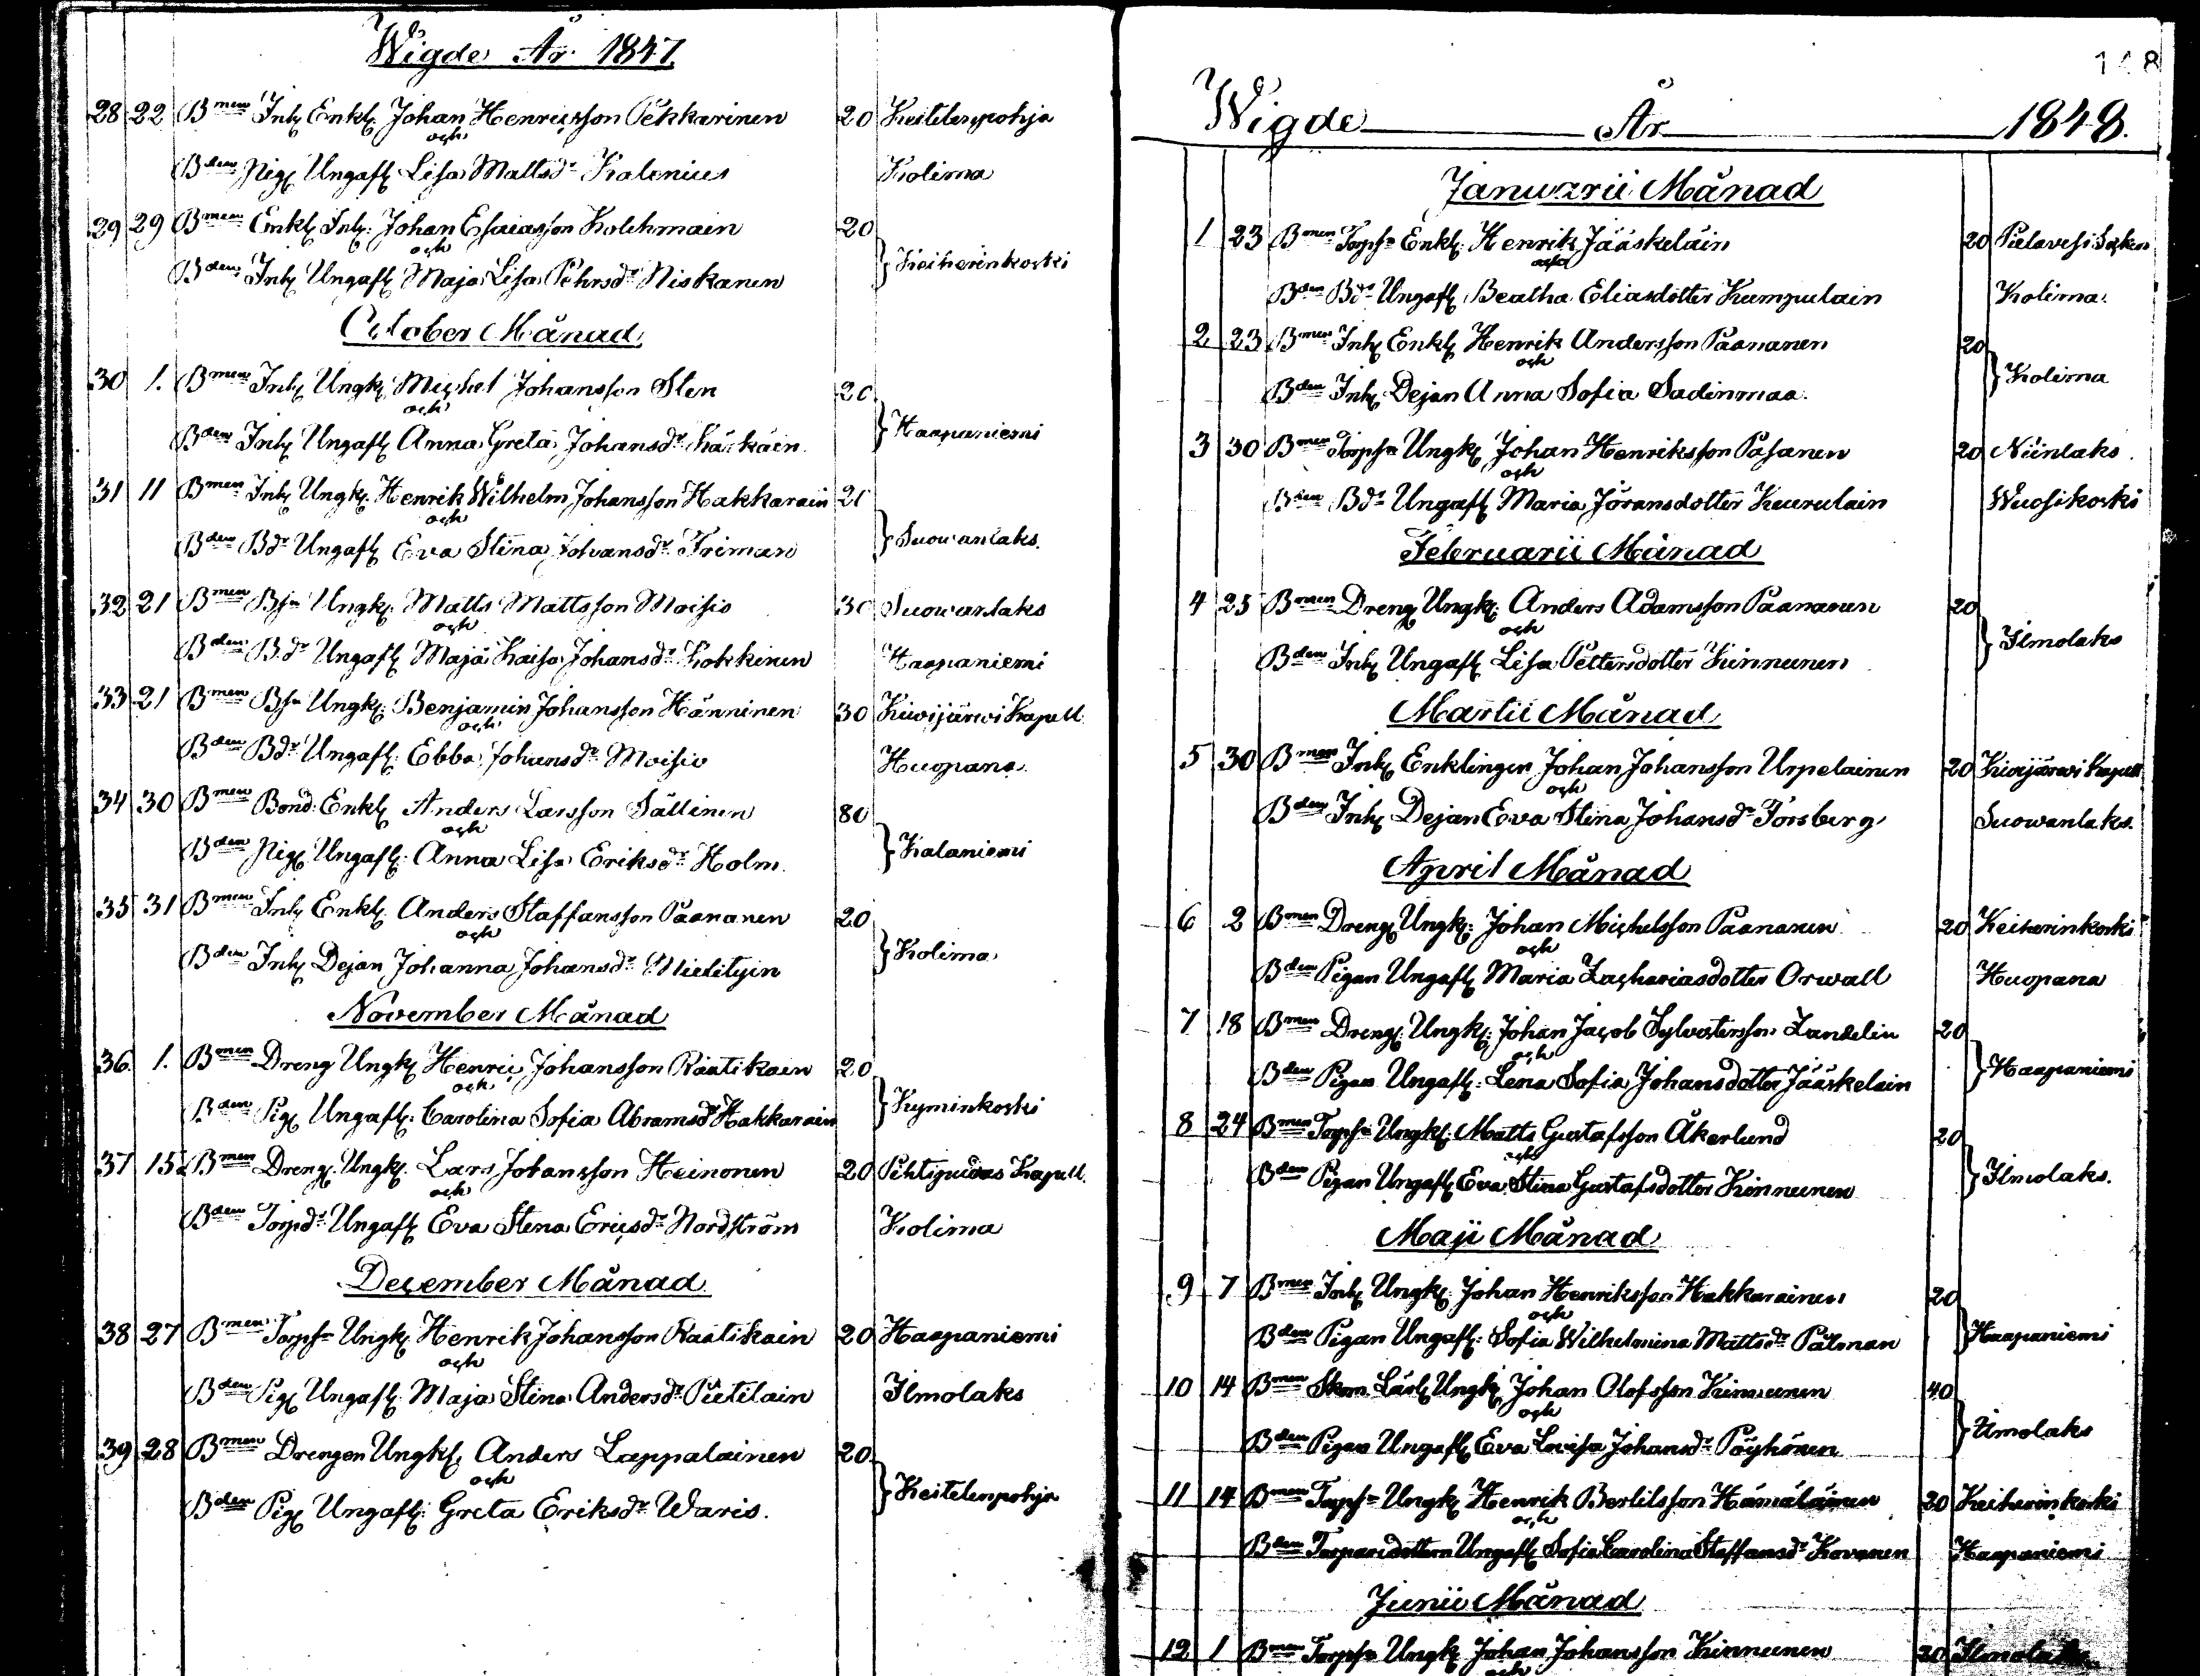 Wigde År 1847.
28 22 Bmen Inh. Enkl. Johan Henricsson Pekkarinen 20 Keitelenpohja
och
Bden Pig. Ungafl. Lisa Mattsdr Kalenius Kolima
29 29 Bmen Enkl. Inh. Johan Esaiasson Kolehmain 20
och
Bden Inh. Ungafl. Maja Lisa Pehrsdr Niskanen } Keiherinkoski
October Månad
30 1. Bmen Inh. Ungk. Michel Johansson Sten 20
och
Bden Inh. Ungafl. Anna Greta Johansdr } Haapaniemi
31 11 Bmen Inh. Ungk. Henrik Wilhelm Johansson Hakkarain
och
Bden Bdr Ungafl. Eva Stina Johansdr Friman } Suowanlaks.
32 21 Bmen Bsn Ungk. Matts Mattsson Moisio 30 Suowanlaks
och
Bden Bdr Ungafl. Maja Kaisa Johansdr Kokkinen Haapaniemi
33 21 Bmen Bsn Ungk. Benjamin Johansson Hänninen 30 Kiwijärwi Kapell
och
Bden Bdr Ungafl. Ebba Johansdr Moisio Huopana.
34 30 Bmen Bond. Enkl. Anders Larsson Sällinen 80
och
Bden Pig. Ungafl. Anna Lisa Eriksdr Holm. } Kalaniemi
35 31 Bmen Inh. Enkl. Anders Staffansson Paananen 20
och
Bden Inh. Dejan Johanna Johansdr Mielityin } Kolima
November Månad
36 1. Bmen Dreng Ungk. Henric Johansson Raatikain 20
och
Bden Pig. Ungafl. Carolina Sofia Abramsdr Hakkarain } Kyminkoski
37 15 Bmen Dreng. Ungk. Lars Johansson Heinonen 20 Pihtipudas Kapell.
och
Bden Torpdr Ungafl. Eva Stena Ericsdr Nordström Kolima
December Månad
38 27 Bmen Torpsn Ungk. Henrik Johansson Raatikain 20 Haapaniemi
och
Bden Pig. Ungafl. Maja Stina Andersdr Pietilain Ilmolaks
39 28 Bmen Drengen Ungk. Anders Lappalainen 20
och
Bden Pig. Ungafl. Greta Eriksdr Waris. } Keitelenpohja
148
Wigde År 1848.
Januarii Månad
1 23 Bmen Torpsn Enkl. Henrik Jääskeläin 20 Pielavesi Sokn
och
Bden Bdr Ungafl. Beatha Eliasdotter Kumpulain Kolima.
2 23 Bmen Inh. Enkl. Henrik Andersson Paananen 20
och
Bden Inh. Dejan Anna Sofia Sadinmaa. } Kolima
3 30 Bmen Torpsn Ungk. Johan Henriksson Pasanen 20 Niinlaks.
och
Bden Bdr Ungafl. Maria Jöransdotter Kaurulain Wuosikoski
Februarii Månad
4 25 Bmen Dreng Ungk. Anders Adamsson Paananen 20
och
Bden Inh. Ungafl. Lisa Pettersdotter Kinnunen } Ilmolaks
Martii Månad
5 30 Bmen Inh. Enklingen Johan Johansson Urpelainen 20 Kiwijärwi Kapell
och
Bden Inh. Dejan Eva Stina Johansdr Forsberg Suowanlaks.
April Månad
6 2 Bmen Dreng. Ungk. Johan Michelsson Paananen 20 Keiherinkoski
och
Bden Pigan Ungafl. Maria Zachariasdotter Orwall Huopana
7 18 Bmen Dreng. Ungk. Johan Jacob Sylvestersson Zandelin 20
och
Bden Pigan Ungafl. Lena Sofia Johansdotter Jääskelain } Haapaniemi
8 24 Bmen Torpsn Ungk. Matts Gustafsson Åkerlund 20
och
Bden Pigan Ungafl. Eva Stina Gustafsdotter Kinnunen } Ilmolaks.
Maji Månad
9 7 Bmen Inh. Ungk. Johan Henriksson Hakkarainen 20
och
Bden Pigan Ungafl. Sofia Wilhelmina Mattsdr Pålman } Haapaniemi
10 14 Bmen Skom. Lärl. Ungk. Johan Olofsson Kinnunen 40
och
Bden Pigan Ungafl. Eva Lovisa Johansdr Pöyhönen } Ilmolaks
11 14 Bmen Torpsn Ungk. Henrik Bertilsson Hämäläinen 20 Keiherinkoski
och
Bden Torparedottern Ungafl. Sofia Carolina Staffansdr Kovanen Haapaniemi
Junii Månad
12 1 Bmen Torpsn Ungk. Johan Johansson Kinnunen 20 Ilmolaks
och